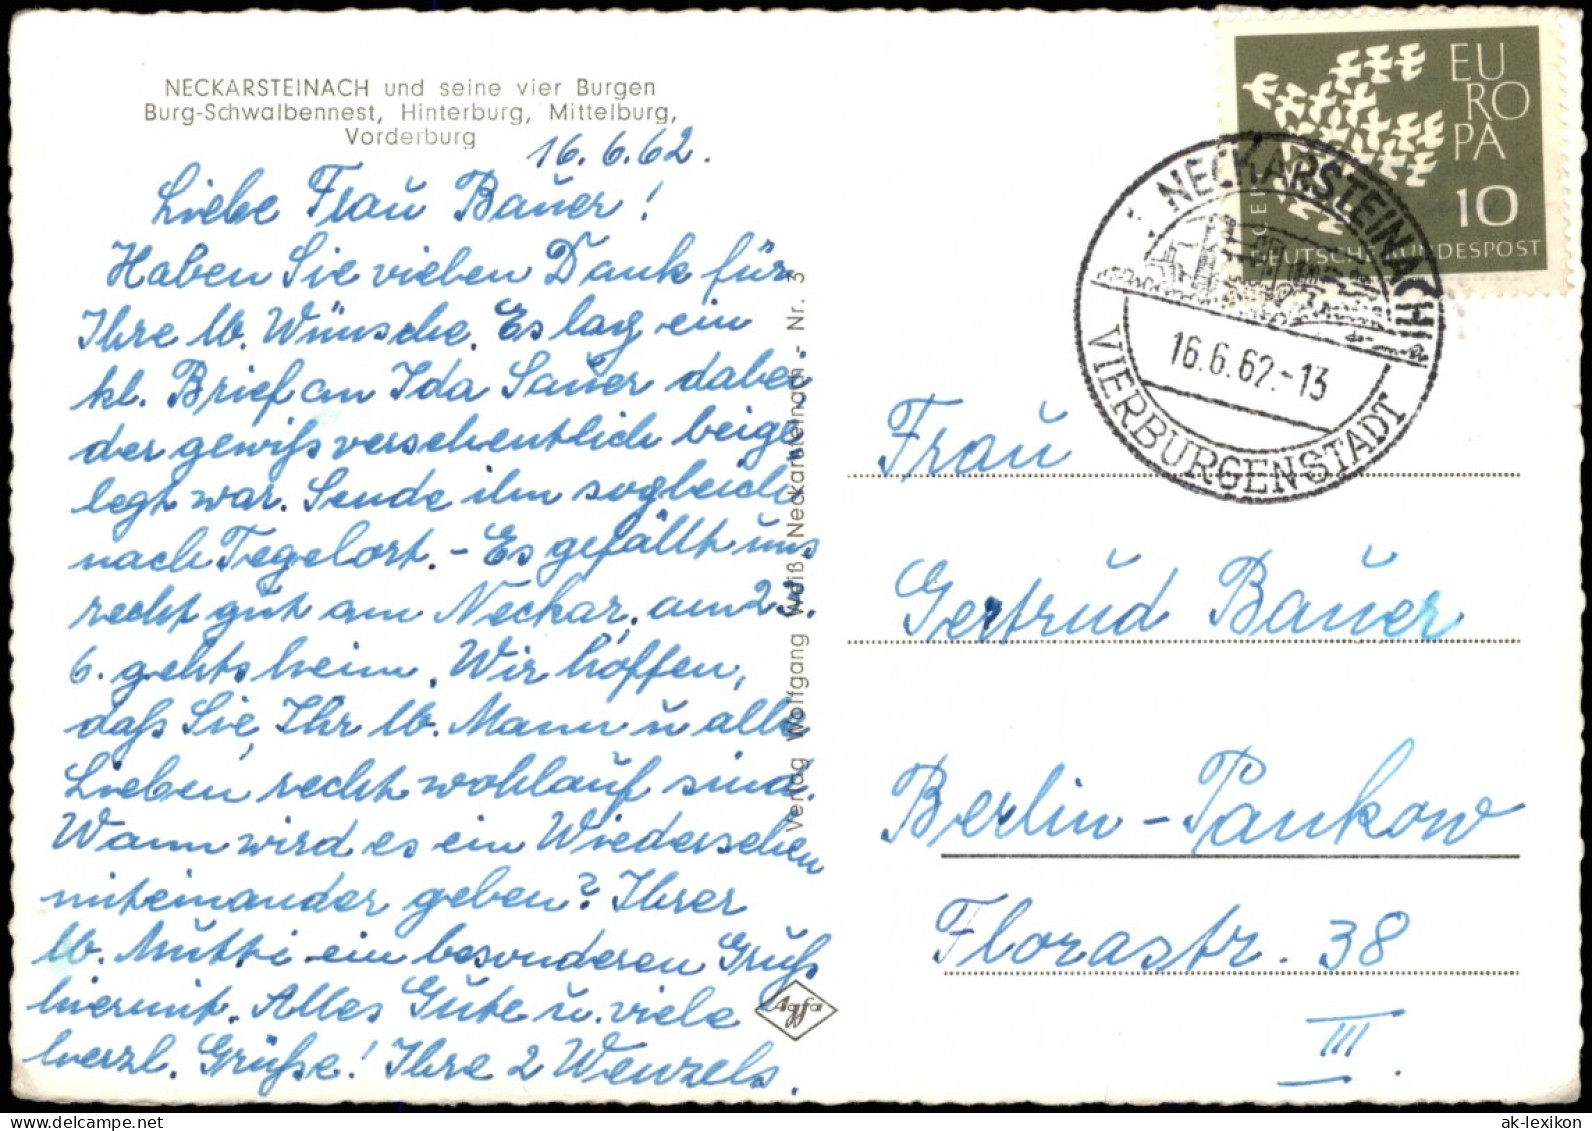 NECKARSTEINACH und seine vier Burgen
Burg-Schwalbennest, Hinterburg, Mittelburg,
Vorderburg
16.6.62.
Liebe Frau Bauer!
Haben Sie vielen Dank für
Ihre lb. Wünsche. Es lag ein
kl. Brief an Ida Sauer dabei,
der gewiß versehentlich beige
legt war. Sende ihn sogleich
nach Tegelort. - Es gefällt uns
recht gut am Neckar, am 23.
6. gehts heim. Wir hoffen,
daß Sie, Ihr lb. Mann u alle
Lieben recht wohlauf sind.
Wann wird es ein Wiedersehen
miteinander geben? Ihrer
lb. Mutti ein besonderen Gruß
hiermit. Alles Gute u. viele
herzl. Grüße! Ihre 2 Wenzels.
Verlag Wolfgang Weiß Neckarsteinach - Nr. 3
Agfa
EU
RO
PA
10
DEUTSCHE BUNDESPOST
NECKARSTEINACH
16.6.62.-13
VIERBURGENSTADT
Frau
Gertrud Bauer
Berlin-Pankow
Florastr. 38
III.
ak-lexikon